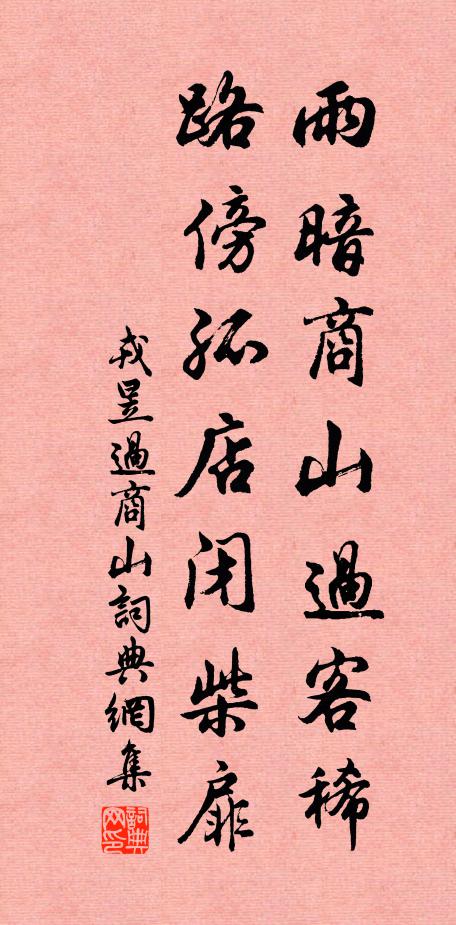 雨暗商山過客稀
路傍孤店闭柴扉
戎昱過商山詞典網集
詞典
网印